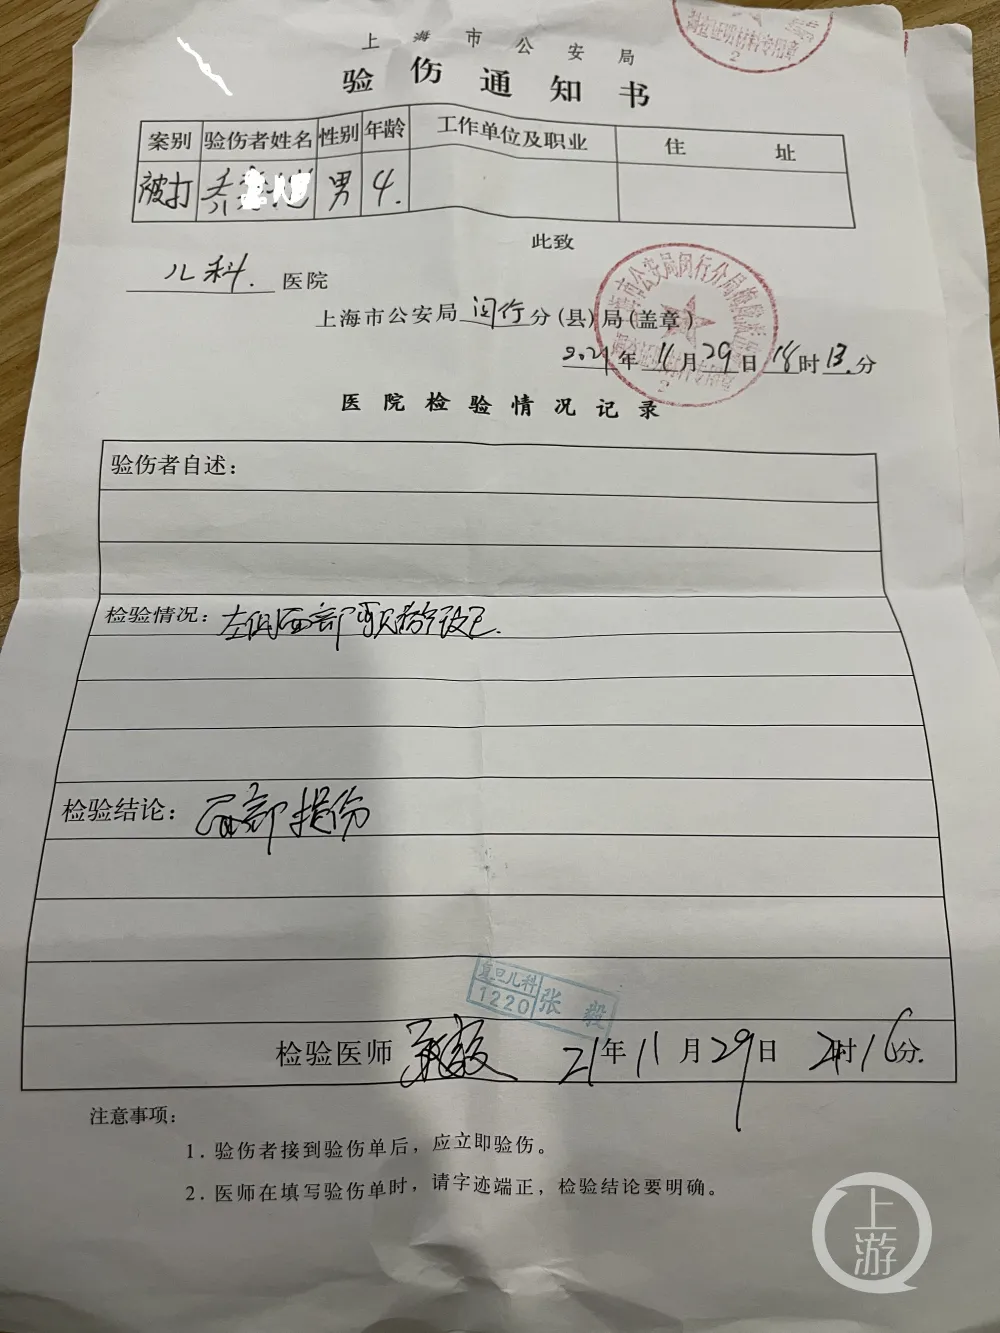 调查证明材料专用章
2
上海市公安局
验伤通知书
案别 验伤者姓名 性别 年龄 工作单位及职业 住 址
被打 男 4.
此致
儿科. 医院
上海市公安局闵行分(县)局(盖章)
2021年11月29日18时13.分
2
医院检验情况记录
验伤者自述：
检验情况：左侧面部
检验结论：局部损伤
复旦儿科
1220 张毅
检验医师 张毅 21年11月29日 21时16分.
注意事项：
1. 验伤者接到验伤单后，应立即验伤。
2. 医师在填写验伤单时，请字迹端正，检验结论要明确。
上游